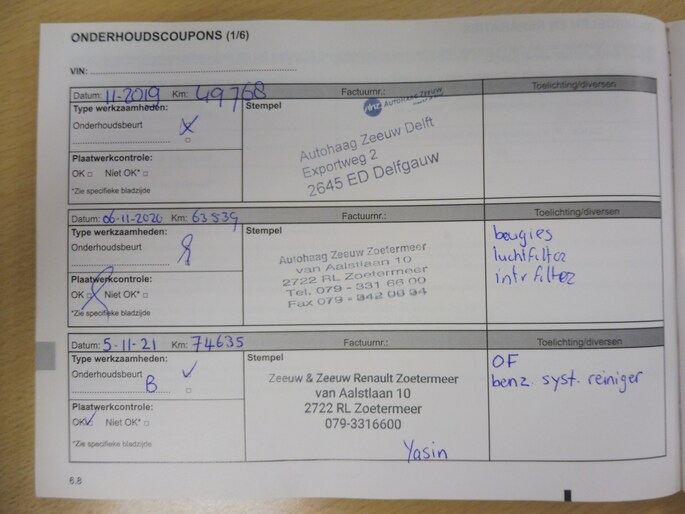 ONDERHOUDSCOUPONS (1/6)
VIN:
Datum: 11-2019 Km: 49768
Factuurnr.:
Toelichting/diversen
Type werkzaamheden:
Onderhoudsbeurt
Stempel
Autohaag Zeeuw
Autohaag Zeeuw Delft
Exportweg 2
2645 ED Delfgauw
Plaatwerkcontrole:
OK Niet OK*
*Zie specifieke bladzijde
Datum: 06-11-2020 Km: 63539
Factuurnr.:
Toelichting/diversen
Type werkzaamheden:
Onderhoudsbeurt
Stempel
Autohaag Zeeuw Zoetermeer
van Aalstlaan 10
2722 RL Zoetermeer
Tel. 079 - 331 66 00
Fax 079 - 342 06 34
bougies
luchtfilter
intr filter
Plaatwerkcontrole:
OK Niet OK*
*Zie specifieke bladzijde
Datum: 5-11-21 Km: 74635
Factuurnr.:
Toelichting/diversen
Type werkzaamheden:
Onderhoudsbeurt
B
Stempel
Zeeuw & Zeeuw Renault Zoetermeer
van Aalstlaan 10
2722 RL Zoetermeer
079-3316600
Yasin
OF
benz. syst. reiniger
Plaatwerkcontrole:
OK Niet OK*
*Zie specifieke bladzijde
6.8